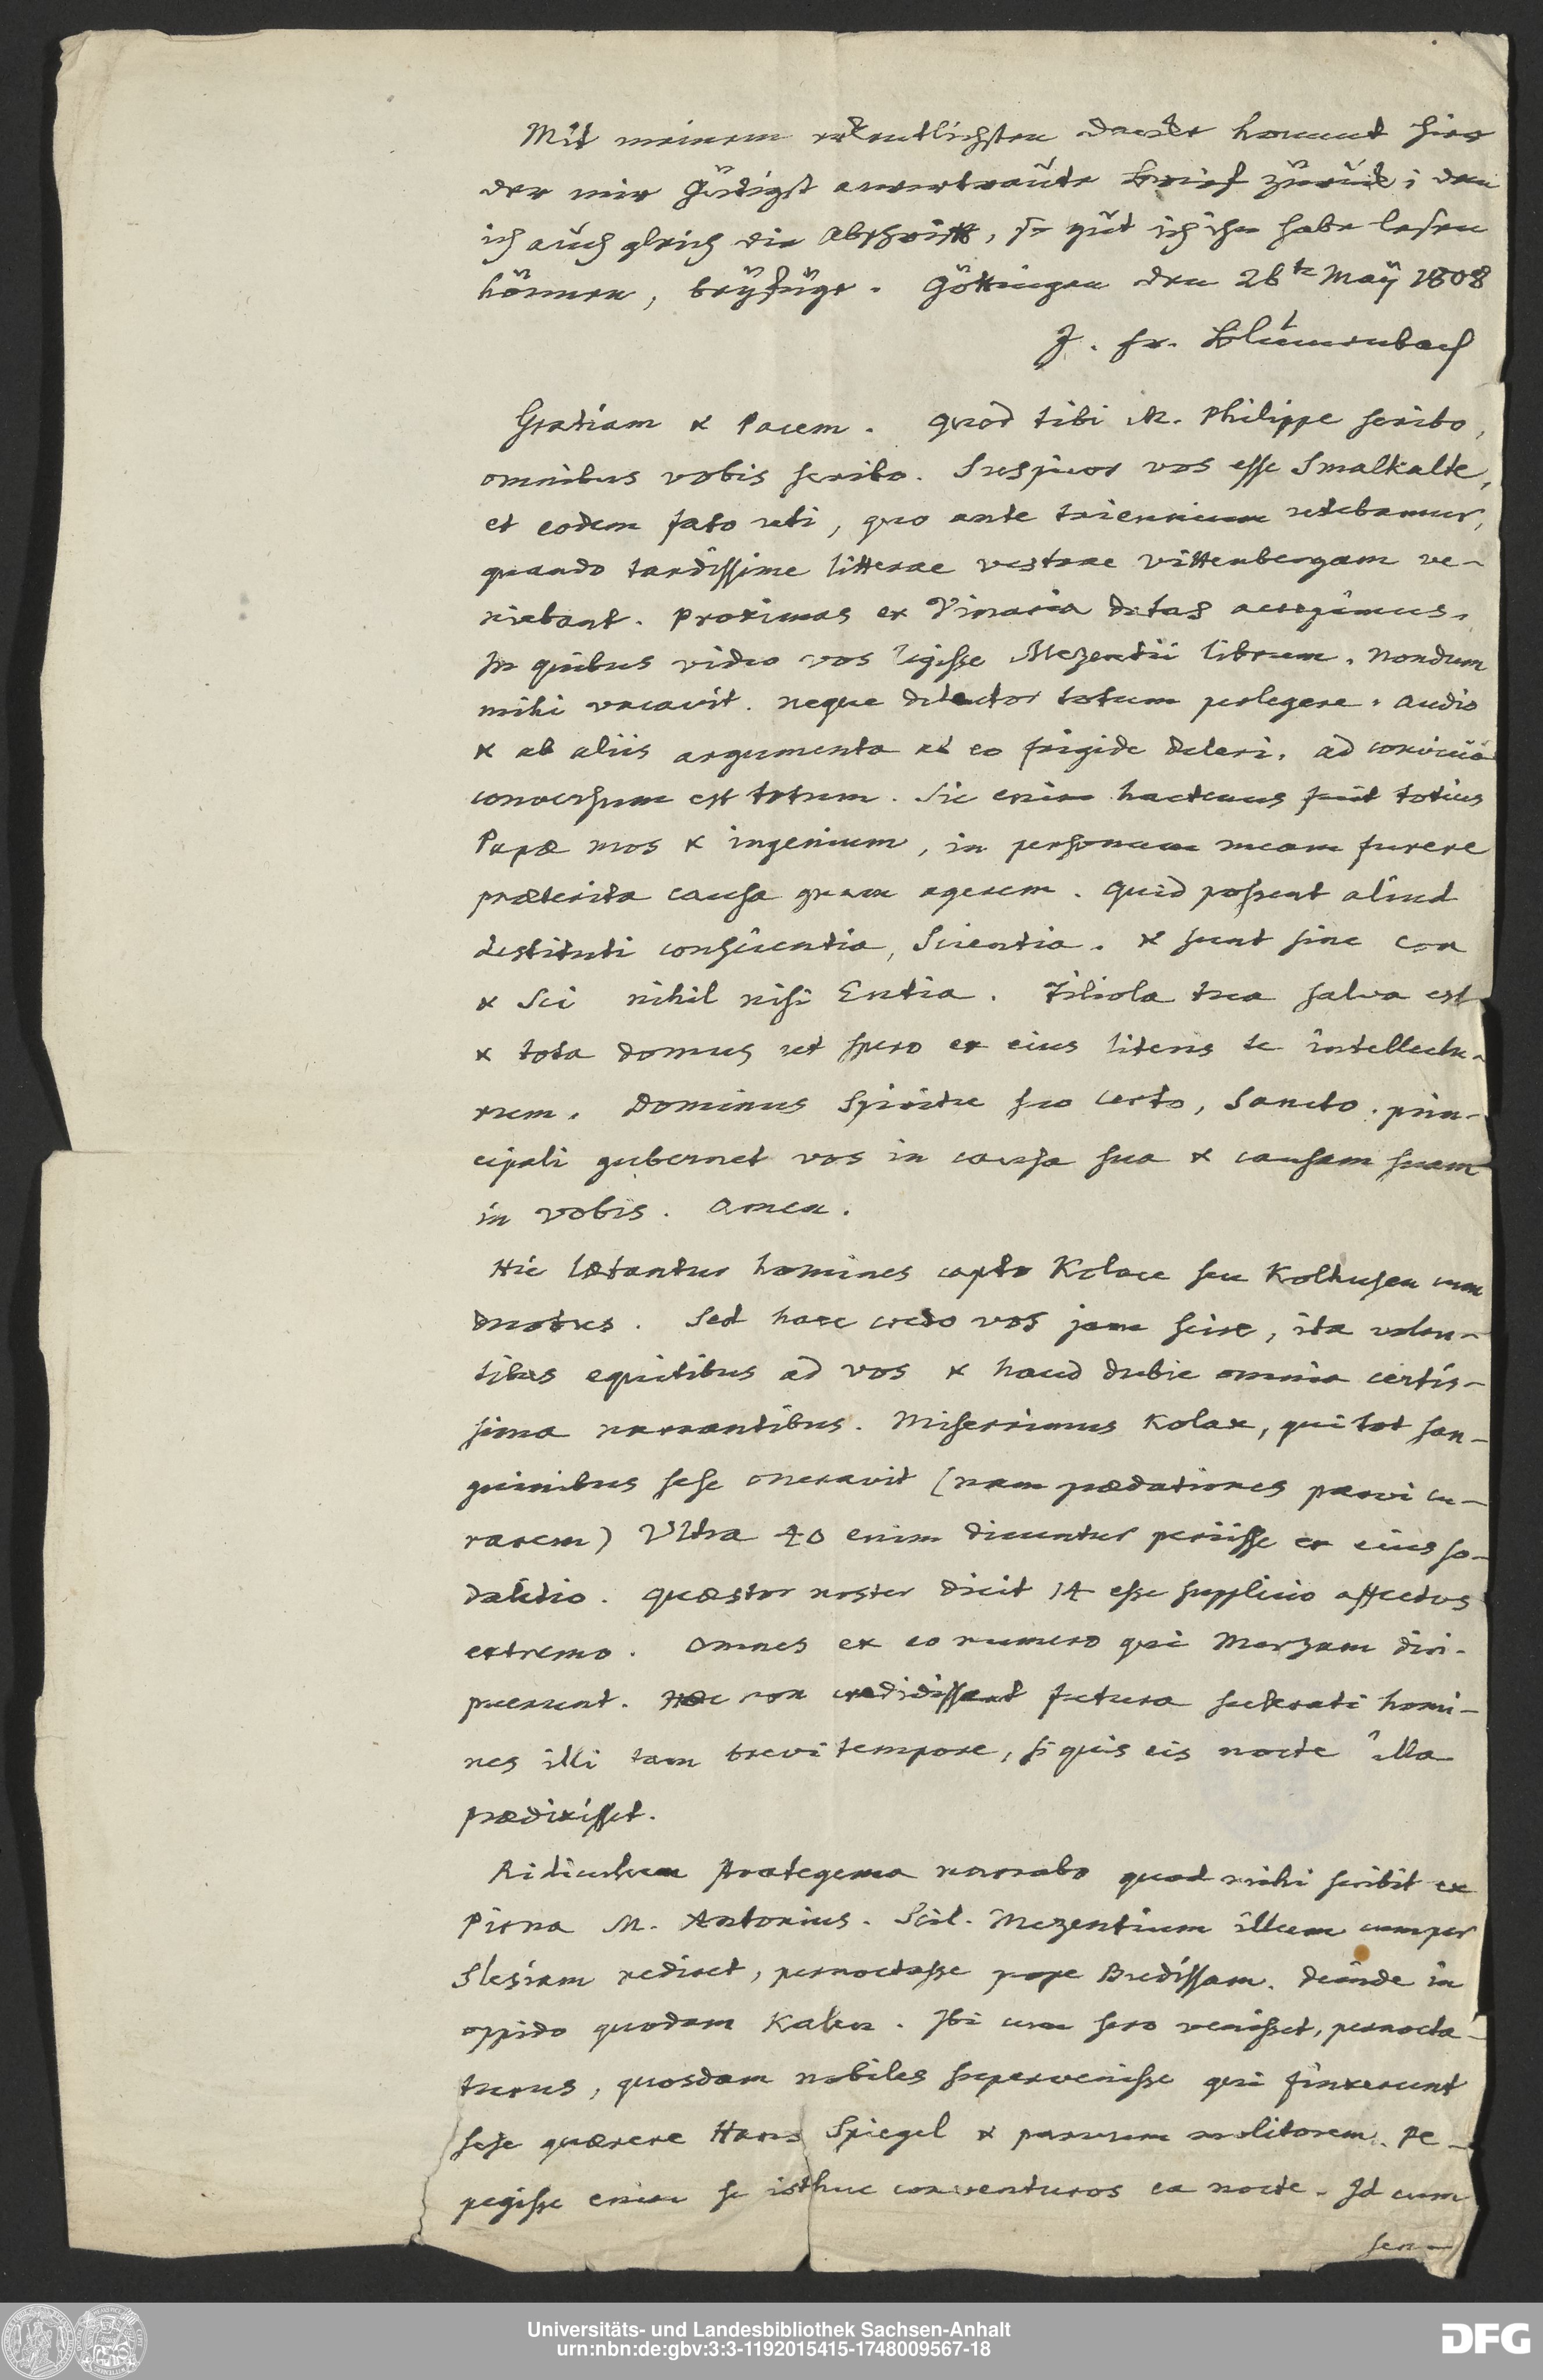 Mit meinem verbindlichsten Danke kommt hier
der mir gütigst anvertraute Brief zurück; den
ich auch gleich die Abschrift, so gut ich ihn habe lesen
können, beyfüge. Göttingen den 26te May 1808
J. Fr. Blumenbach
Gratiam & Pacem. Quod tibi M. Philippe scribo,
omnibus vobis scribo. Suspicor vos esse Smalkalde,
et eodem fato uti, quo ante triennium utebamur,
quando tardissime litterae vestrae Vittenbergam ve-
niebant. Proximas ex Vinaria datas accepimus.
In quibus video vos legisse Mezentii librum. Nondum
mihi vacavit. neque delector totum perlegere. Audio
& ab aliis argumenta ab eo frigide
conversum est totum. Sic enim hactenus fuit totius
Papæ mos & ingenium, in personam meam furere
præterita causa quam agerem. Quid possent aliud
destituti conscientia, Scientia. & sunt sine Con
& Sci nihil nisi Entia. Filiola tua salva est
& tota domus ut spero ex eius literis te intellectu-
rum. Dominus Spiritu suo certo, Sancto. prin-
cipali gubernet vos in causa sua & causam suam
in vobis. Amen.
Hic lætantur homines capto Kolace seu Kolhusen cum
Sed haec credo vos jam scire, ita volan-
tibus equitibus ad vos & haud dubie omnia certis-
sima narrantibus. Miserrimus Kolax, qui tot san-
guinibus sese oneravit (nam prædationes parvi cu-
rarem) Ultra 40 enim dicuntur periisse ex eius so-
dalitio. Quæstor noster dicit 14 esse supplicio affectos
extremo. Omnes ex eo numero qui Marzam diri-
puerunt. Hæc non credidissent futura scelerati homi-
nes illi tam brevi tempore, si quis eis nocte illa
prædixisset.
Ridiculum strategema narrabo quod mihi scribit ex
Pirna M. Antonius. Scil. Mezentium illum cum per
Slesiam rediret, pernoctasse prope Budissam. deinde in
oppido quodam Kalen. Ibi cum sero venisset, pernocta-
turus, quosdam nobiles supervenisse qui finxerunt
sese quærere Hans Spiegel & parvum molitorem. Pe-
pegisse enim se isthuc conventuros ea nocte. Id cum